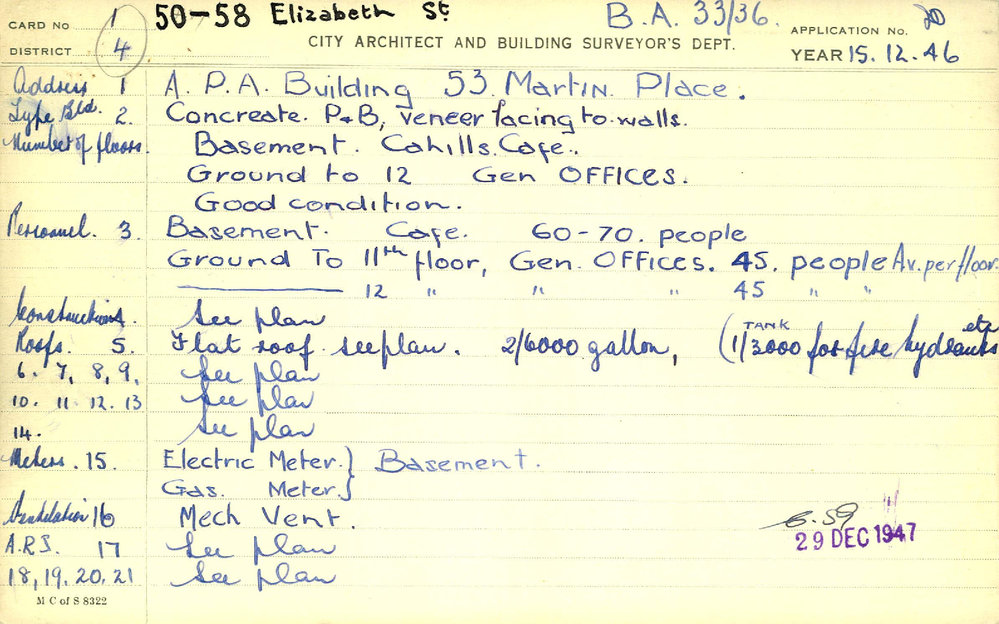 CARD No 1 50-58 Elizabeth St B.A. 33/36. APPLICATION No. 20
DISTRICT 4 CITY ARCHITECT AND BUILDING SURVEYOR'S DEPT. YEAR 15.12.46
Address 1 A.P.A. Building 53. Martin Place.
Type Bld. 2. Concreate. P&B, veneer facing to walls.
Number of floors. Basement. Cahills. Cafe.
Ground to 12 Gen OFFICES.
Good condition.
Personnel. 3. Basement. Cafe. 60-70. people
Ground To 11th floor, Gen. OFFICES. 45. people Av. per floor.
12 " " " 45 " "
Constructions. See plan
Roofs. 5. Flat roof. see plan. 2/6000 gallon, (1/3000 TANK for fire hydrants etc
6. 7, 8, 9, See plan
10. 11. 12. 13 See plan
14. See plan
Meters. 15. Electric Meter.} Basement.
Gas. Meter.}
Ventilation 16 Mech Vent.
A.R.S. 17 See plan
18, 19. 20, 21 See plan
6.59
29 DEC 1947
M C of S 8322